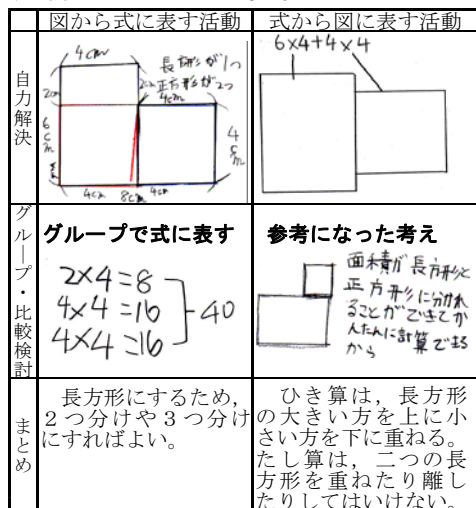 図から式に表す活動
式から図に表す活動
自力解決
4cm
長方形が1つ
正方形が2つ
2cm
2cm
4cm
6cm
4cm
4cm
8cm
4cm
6×4+4×4
グループ・比較検討
グループで式に表す
2×4=8
4×4=16
4×4=16
40
参考になった考え
面積が長方形と
正方形に分かれ
ることができて
かんたんに計算できる
から
まとめ
長方形にするため,
2つ分けや3つ分け
にすればよい。
ひき算は,長方形
の大きい方を上に小
さい方を下に重ねる。
たし算は,二つの長
方形を重ねたり離し
たりしてはいけない。